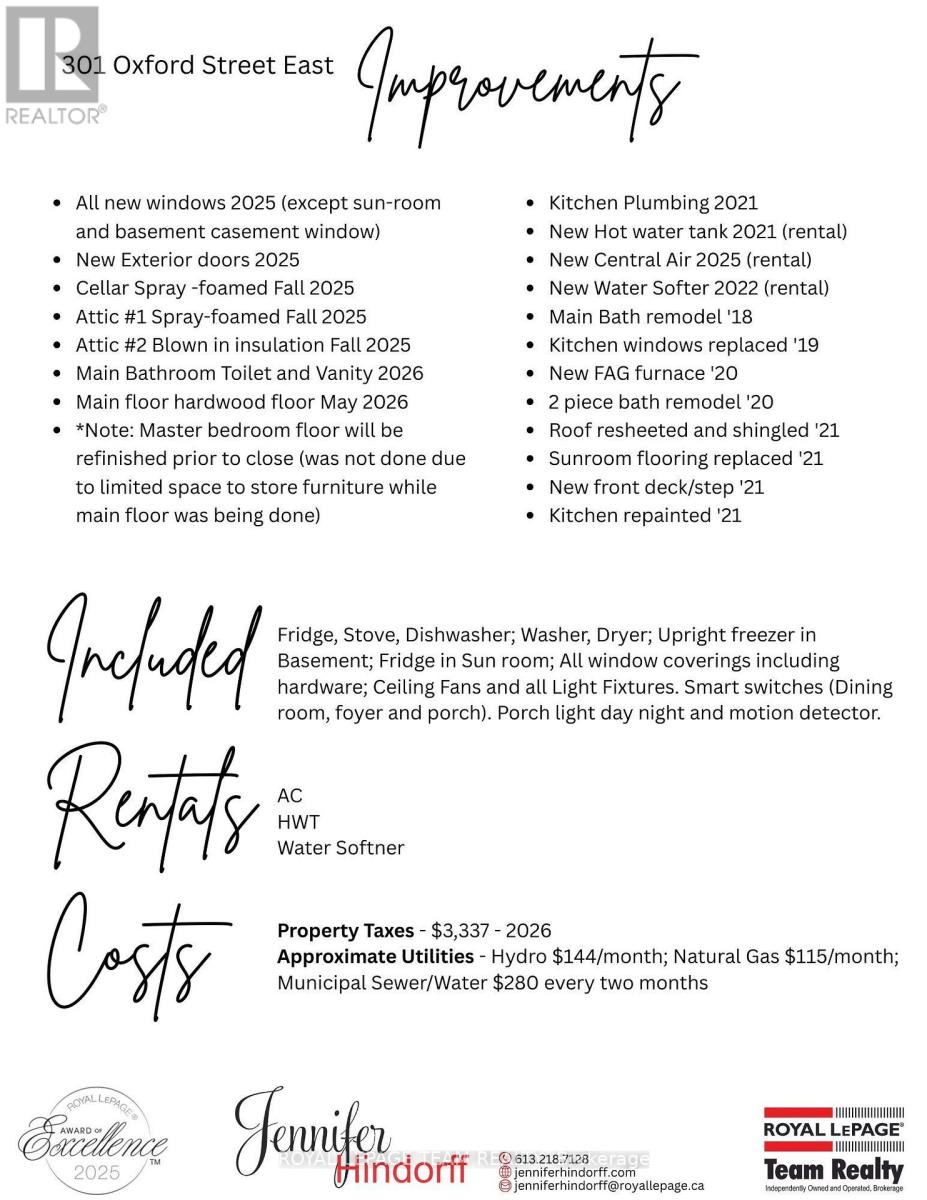 301 Oxford Street East
Improvements
REALTOR®
• All new windows 2025 (except sun-room
and basement casement window)
• New Exterior doors 2025
• Cellar Spray -foamed Fall 2025
• Attic #1 Spray-foamed Fall 2025
• Attic #2 Blown in insulation Fall 2025
• Main Bathroom Toilet and Vanity 2026
• Main floor hardwood floor May 2026
• *Note: Master bedroom floor will be
refinished prior to close (was not done due
to limited space to store furniture while
main floor was being done)
• Kitchen Plumbing 2021
• New Hot water tank 2021 (rental)
• New Central Air 2025 (rental)
• New Water Softer 2022 (rental)
• Main Bath remodel '18
• Kitchen windows replaced '19
• New FAG furnace '20
• 2 piece bath remodel '20
• Roof resheeted and shingled '21
• Sunroom flooring replaced '21
• New front deck/step '21
• Kitchen repainted '21
Included
Fridge, Stove, Dishwasher; Washer, Dryer; Upright freezer in
Basement; Fridge in Sun room; All window coverings including
hardware; Ceiling Fans and all Light Fixtures. Smart switches (Dining
room, foyer and porch). Porch light day night and motion detector.
Rentals
AC
HWT
Water Softner
Costs
Property Taxes - $3,337 - 2026
Approximate Utilities - Hydro $144/month; Natural Gas $115/month;
Municipal Sewer/Water $280 every two months
ROYAL LEPAGE®
AWARD OF
Excellence™
2025
Jennifer
Hindorff
ROYAL LEPAGE TEAM REALTY Brokerage
613.218.7128
jenniferhindorff.com
jenniferhindorff@royallepage.ca
ROYAL LEPAGE®
Team Realty
Independently Owned and Operated, Brokerage